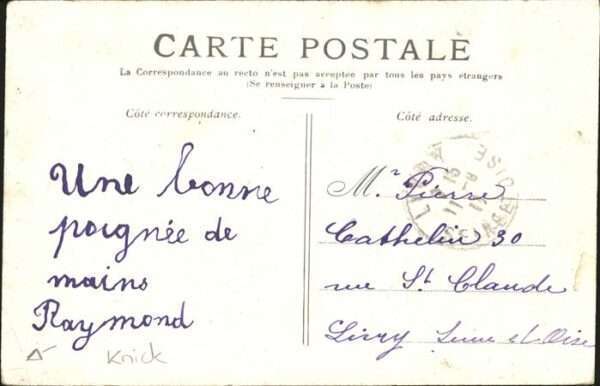 CARTE POSTALE
La Correspondance au recto n'est pas acceptée par tous les pays étrangers
(Se renseigner à la Poste)
Côté correspondance.
Côté adresse.
Une bonne
poignée de
mains
Raymond
Mr Pierre
Cathelin 30
rue St Claude
Livry Seine et Oise
Knick